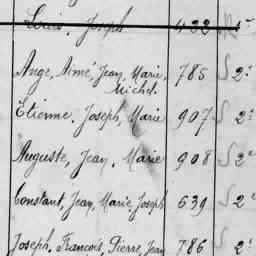 Louis, Joseph 432 1º
Ange, Aimé, Jean, Marie, 785 2º
Michel.
Etienne, Joseph, Marie 907 2º
Auguste, Jean, Marie 908 2º
Constant, Jean, Marie, Joseph 639 2º
Joseph, François, Pierre, Jean 786 2º